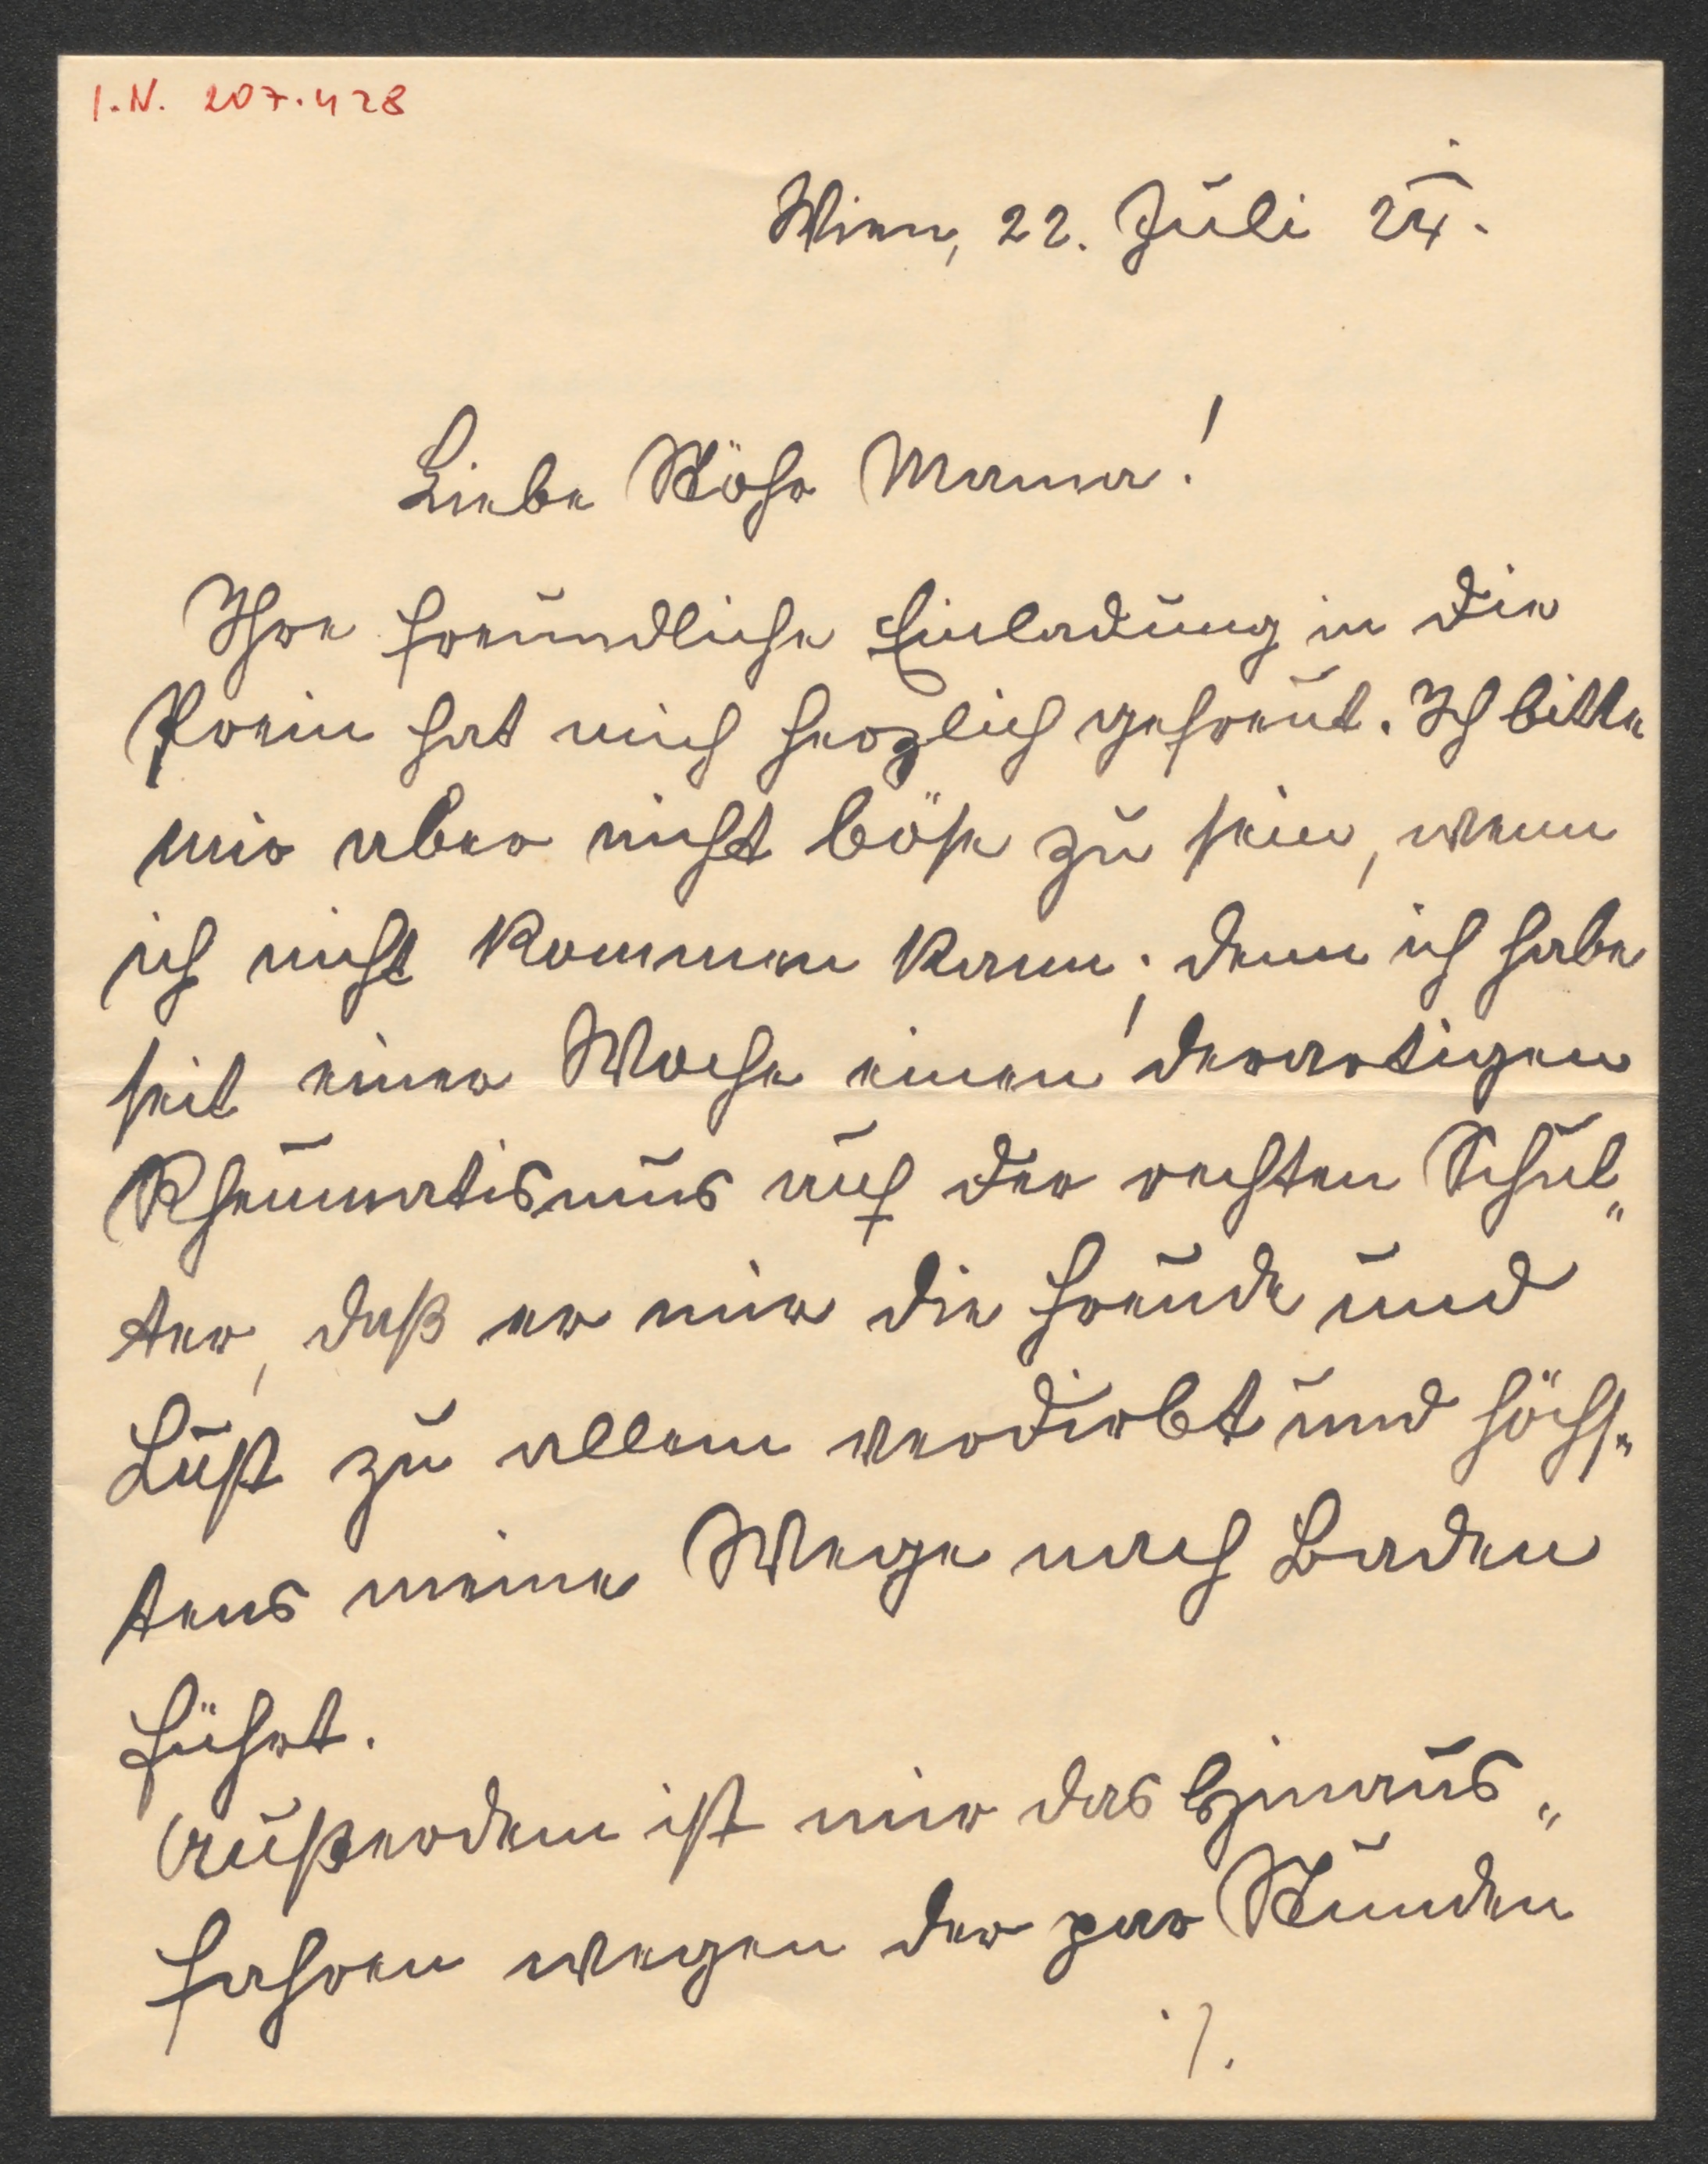 I.N. 207.428
Wien, 22. Juli 24.
Liebe Stöhr Mama!
Ihre freundliche Einladung in die
Prein hat mich herzlich gefreut. Ich bitte
mir aber nicht böse zu sein, wenn
ich nicht kommen kann; denn ich habe
seit einer Woche einen derartigen
Rheumatismus auf der rechten Schul„
ter, daß er mir die Freude und
Lust zu allem verdirbt und höchs„
tens meine Wege nach Baden
führt.
Außerdem ist mir das Hinaus„
fahren wegen der par Stunden
./.